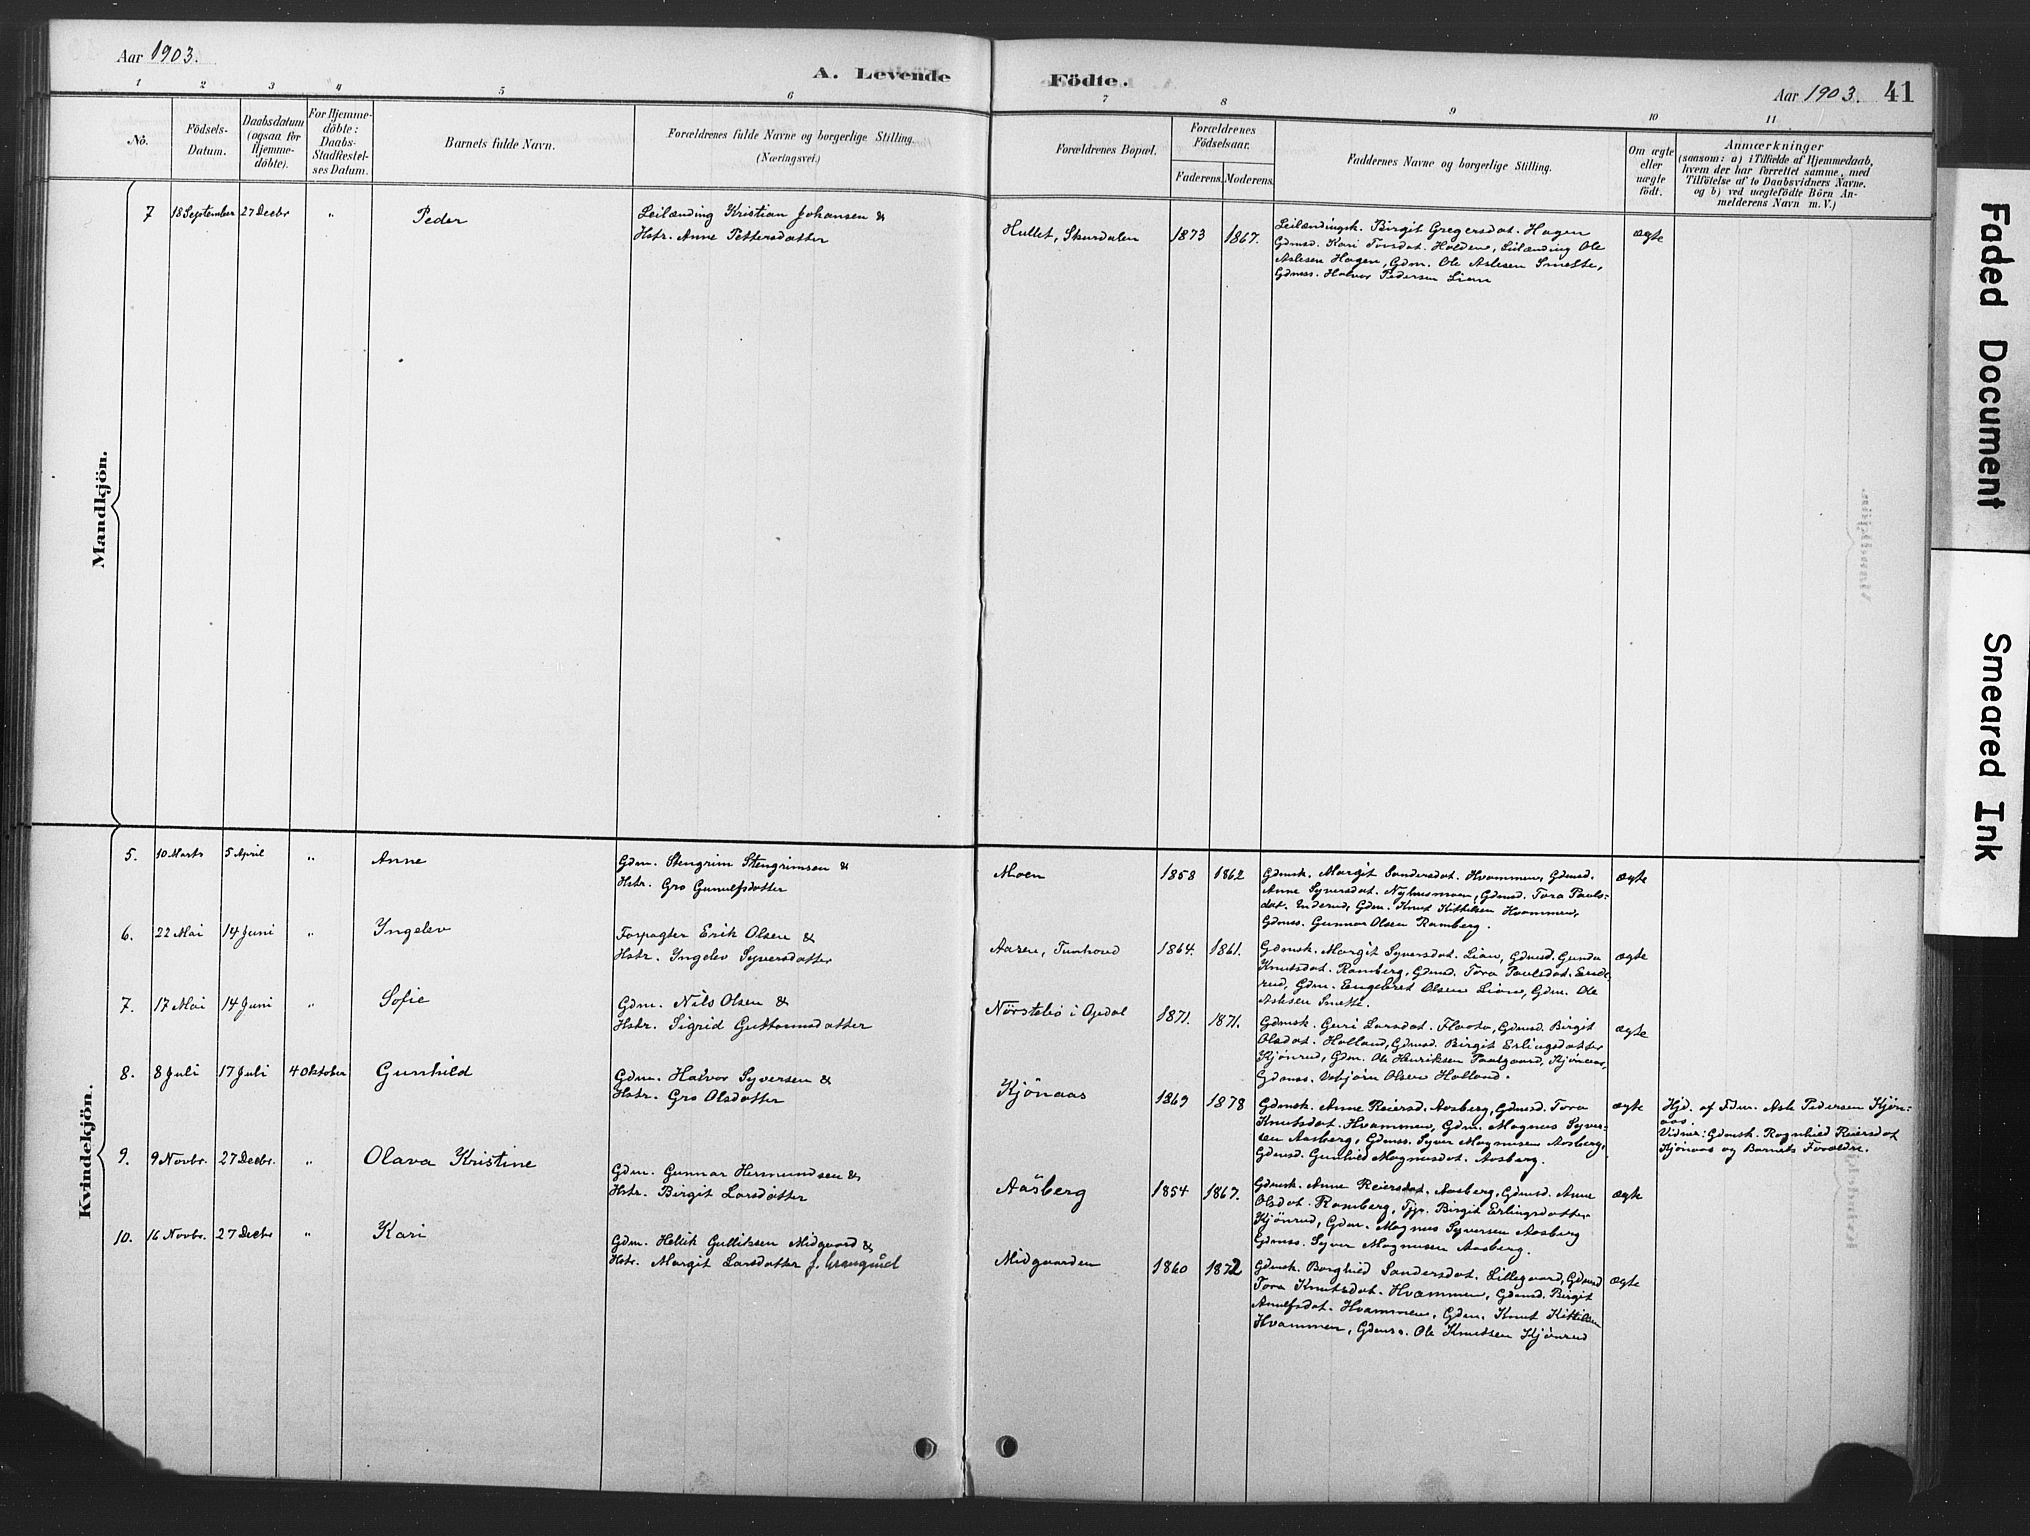 Aar 1903.
A. Levende Födte.
Aar 1903. 41
1 2 3 4 5 6 7 8 9 10 11
No.
Födsels-
Datum.
Daabsdatum
(ogsaa for
Hjemme-
döbte).
For Hjemme-
döbte:
Daabs-
Stadfæstel-
ses Datum.
Barnets fulde Navn.
Forældrenes fulde Navne og borgerlige Stilling.
(Næringsvei.)
Forældrenes Bopæl.
Forældrenes
Födselsaar.
Faderens. Moderens.
Faddernes Navne og borgerlige Stilling.
Om ægte
eller
uægte
födt.
Anmærkninger
(saasom: a) i Tilfælde af Hjemmedaab,
hvem der har forrettet samme, med
Tilföielse af to Daabsvidners Navne,
og b) ved uægtefödte Börn An-
melderens Navn m. V.)
Mandkjön.
7 18 September 27 Decbr " Peder
Leilænding Kristian Johansen &
Hstr. Anne Pettersdatter
Hullet, Skurdalen 1873 1867.
Leilændingsk. Birgit Gregersdat. Hagen
Gdmsd. Kari Torsdat. Holdene, Leilænding Ole
Aslesen Hagen, Gdm. Ole Aslesen Smette,
Gdmss. Halvor Pedersen Lien
ægte
Kvindekjön.
5. 10 Marts 5 April " Anne
Gdm. Stengrim Stengrimsen &
Hstr. Gro Gunulfsdatter
Moen 1858 1862
Gdmsk. Margit Sandersdat. Hvammen, Gdmsd.
Anne Syversdat. Nyhusmoen, Gdmsd. Tora Pauls-
dat. Enderud, Gdm. Knut Kittelsen Hvammen,
Gdmss. Gunnar Olsen Ramberg.
ægte
6. 22 Mai 14 Juni " Ingelev
Forpagter Erik Olsen &
Hstr. Ingelev Syversdatter
Aasen, Tunhovd 1864. 1861.
Gdmsk. Margit Syversdat. Lian, Gdmsd. Gunda
Knutsdat. Ramberg, Gdmsd. Tora Paulsdat. Ende-
rud, Gdm. Engebret Olsen Lian, Gdm. Ole
Aslesen Smette.
ægte
7. 17 Mai 14 Juni " Sofie
Gdm. Nils Olsen &
Hstr. Sigrid Guttormsdatter
Nörstebö i Opdal 1871. 1871.
Gdmsk. Guri Larsdat. Flaata, Gdmsd. Birgit
Olsdat. Holland, Gdmsd. Birgit Erlingsdatter
Kjönrud, Gdm. Ole Henriksen Paalgaard, Kjönaas,
Gdmss. Vebjörn Olsen Holland.
ægte
8. 8 Juli 17 Juli 4 Oktober Gunhild
Gdm. Halvor Syversen &
Hstr. Gro Olsdatter
Kjönaas 1869 1878
Gdmsk. Anne Reiersd. Aasberg, Gdmsd. Tora
Knutsdat. Hvammen, Gdm. Magnus Syver-
sen Aasberg, Gdmss. Syver Magnusen Aasberg,
Gdmsd. Gunhild Magnusdat. Aasberg.
ægte
Hjd. af Fdm. Asle Pedersen Kjön-
aas.
Vidner: Gdmsk. Ragnhild Reiersdat
Kjönaas og Barnets Forældre.
9. 9 Novbr. 27 Decbr. " Olava Kristine
Gdm. Gunnar Hermundsen &
Hstr. Birgit Larsdatter
Aasberg 1854 1867.
Gdmsk. Anne Reiersdat. Aasberg, Gdmsd. Anne
Olsdat. Ramberg, Tjp. Birgit Erlingsdatter
Kjönrud, Gdm. Magnus Syversen Aasberg
Gdmss. Syver Magnusen Aasberg.
ægte
10. 16 Novbr. 27 Decbr " Kari
Gdm. Hellik Gulliksen Midgaard &
Hstr. Margit Larsdatter f.
Midgaarden 1860 1872
Gdmsk. Borghild Sandersdat. Lillegaard, Gdmsd
Tora Knutsdat. Hvammen, Gdmsd. Birgit
Arnulfsdat. Hvammen, Gdm. Knut Kittelsen
Hvammen, Gdmss. Ole Knutsen Kjönrud
ægte
Faded Document
Smeared Ink